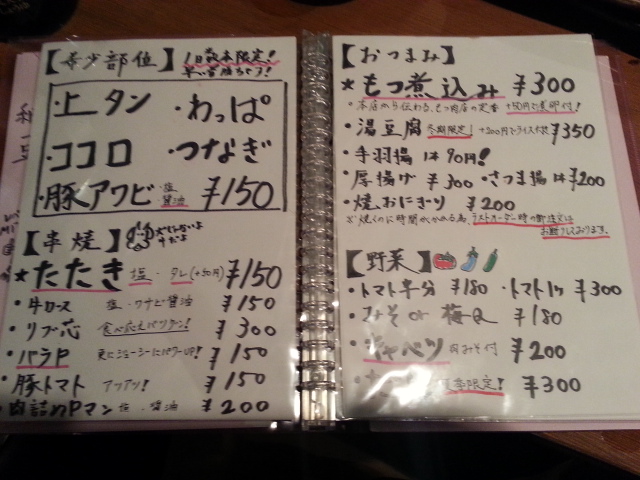 【希少部位】1日数本限定!
早い者勝ちデす!
・上タン ・わっぱ
・ココロ ・つなぎ
・豚アワビ 塩 醤油 ¥150
【串焼】
★たたき 塩・タレ(+50円) ¥150
・牛ロース 塩・ワサビ醤油 ¥150
・リブ芯 食べ応えバツグン! ¥300
・バラP 更にジューシーにパワーUP! ¥150
・豚トマト アツアツ! ¥150
・肉詰めPマン 塩・醤油 ¥200
【おつまみ】
★もつ煮込み ¥300
・本店から伝わる、もつ肉店の定番 +50円で煮卵付!
・湯豆腐 冬期限定! +200円でライス大盛 ¥350
・手羽揚 1本90円!
・厚揚げ ¥300 ・さつま揚 1本¥200
・焼おにぎり ¥200
※焼くのに時間がかかる為、ラストオーダー時の御注文は
お断りしております。
【野菜】
・トマト半分 ¥180 ・トマト1ヶ ¥300
・みそor梅Q ¥180
・キャベツ 肉みそ付 ¥200
夏季限定! ¥300